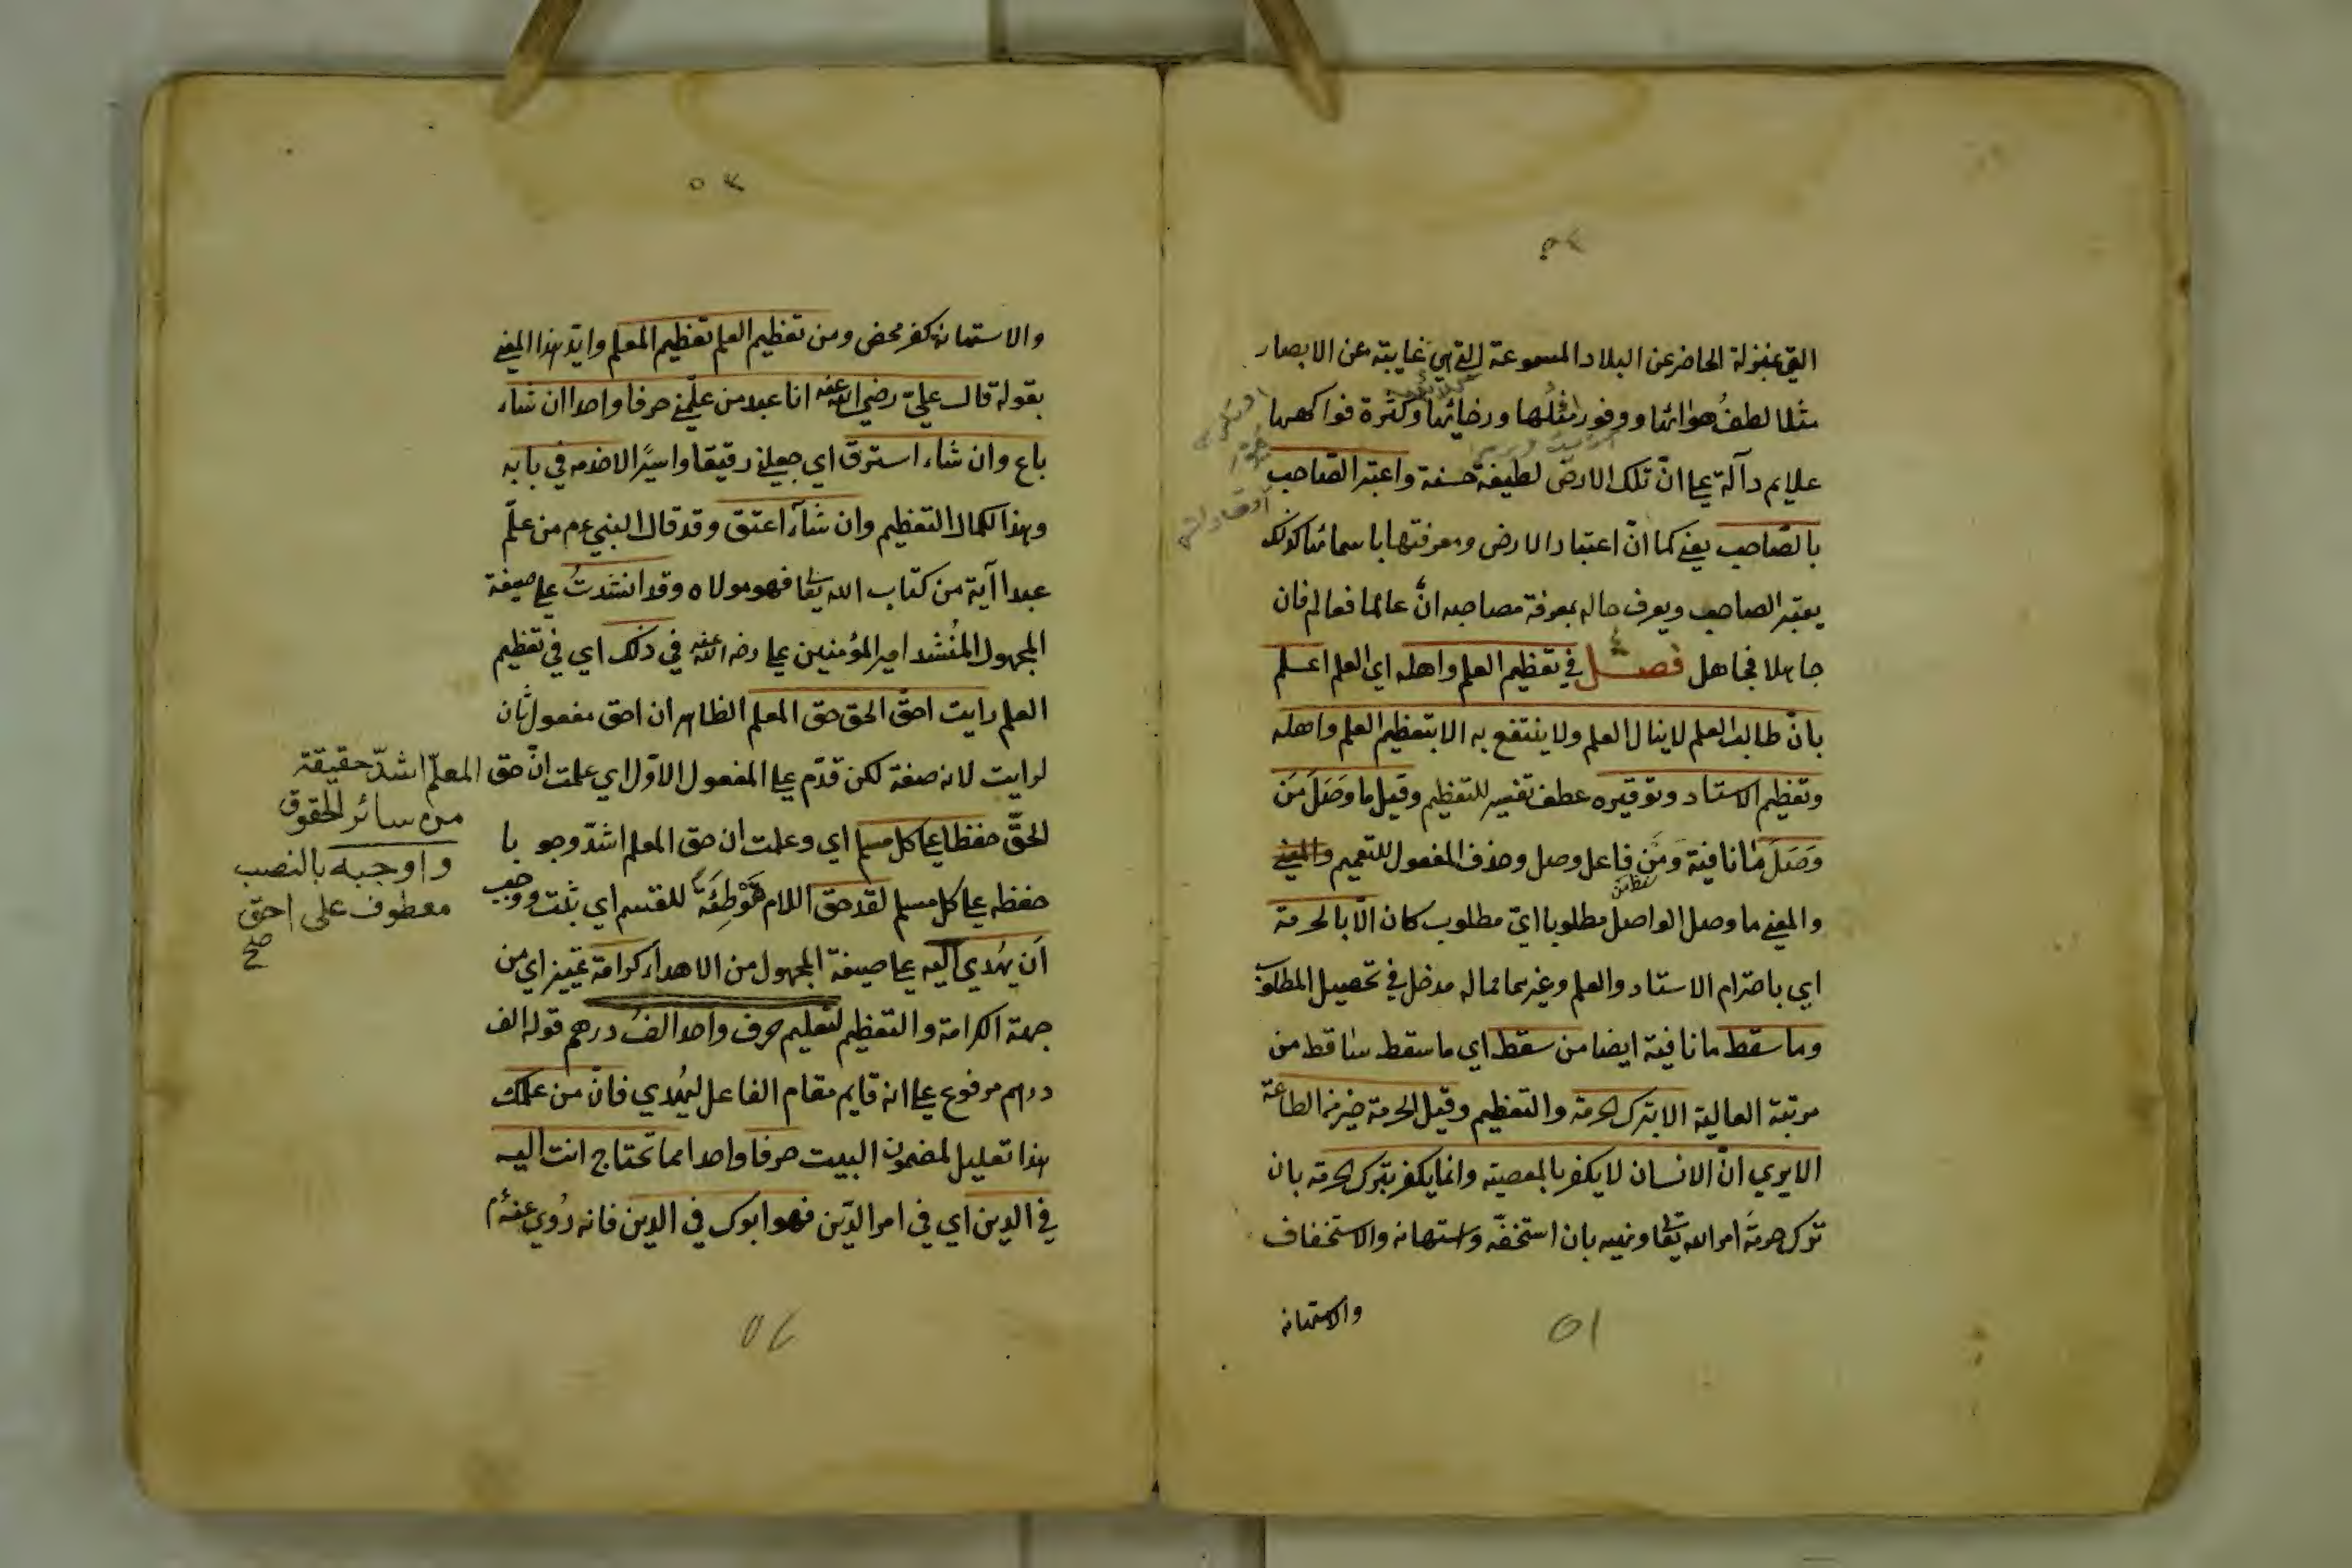 التي بمنزلة الحاضر عن البلاد المسموعة التي هي غايبة عن الابصار
مثلا لطف هوائها ووفور ورخائها وكثرة فواكهها
علايم دآلة علي انّ تلك الارض لطيفة حسنة واعتبر الصّاحب
بالصّاحب يعني كما انّ اعتبار الارض ومعرفتها باسمائها كذلك
يعتبر الصاحب ويعرف حاله بمعرفة مصاحبه انّ عالما فعالم فان
جاهلا فجاهل فصل في تعظيم العلم واهله اي العلم اعلم
بانّ طالب العلم لا ينال العلم ولا ينتفع به الا بتعظيم العلم واهله
وتعظيم الاستاد وتوقيره عطف تفسير للتعظيم وقيل ما وَصَلَ مَن
وَصَلَ ما نافية ومَن فاعل وصل وحذف المفعول للتعميم والمعني
والمعني ما وصل الواصل مطلوبا ايّ مطلوب كان الّا بالحرمة
اي باحترام الاستاد والعلم وغيرهما مما له مدخل في تحصيل المطلوب
وما سقط ما نافية ايضا من سقط اي ما سقط ساقط من
مرتبة العالية الا بترك الحرمة والتعظيم وقيل الحرمة خير من الطاعة
الا يري انّ الانسان لا يكفر بالمعصية وانما يكفر بترك الحرمة بان
ترك حرمةَ امر الله تعا ونهيه بان استخفّه واستهانه والاستخفاف
والاستهانه
٥١
والاستهانة كفر محض ومن تعظيم العلم تعظيم المعلم وايّد هذا المعني
بقوله قال عليّ رضي الله عنه انا عبد من علّمني حرفا واحدا ان شاء
باع وان شاء استرق اي جعلني رقيقا واسيرًا لاخدمه في بابه
وهذا لكمال التعظيم وان شآء اعتق وقد قال النبي عم من علّم
عبدا آية من كتاب الله تعا فهو مولاه وقد انشدتُ علي صيغة
المجهول المُنشد امير المؤمنين علي رضي الله عنه في ذلك اي في تعظيم
العلم رايت احقّ الحق حق المعلم الظاهر ان احق مفعول ثان
لرايت لانه صفة لكن قدّم علي المفعول الاوّل اي علمت انّ حق المعلّم اشدّ حقيقة
من سائر الحقوق
واوجبه بالنصب
معطوف على احق
صح
الحقّ حفظا علي كل مسلم اي وعلمت ان حق المعلم اشدّ وجوبا
حفظه علي كل مسلم لقد حق اللام مُوَطِّئَة للقسم اي ثبت ووجب
اَن يُهدي اليه علي صيغة المجهول من الاهداء كرامة تمييز اي من
جهة الكرامة والتعظيم لتعليم حرف واحد الفُ درهم قوله الف
درهم مرفوع علي انه قايم مقام الفاعل ليُهدي فانّ من علّمك
هذا تعليل لمضمون البيت حرفا واحدا مما تحتاج انت اليه
في الدين اي في امر الدّين فهو ابوك في الدين فانه رُوي عنه عم
٥٢